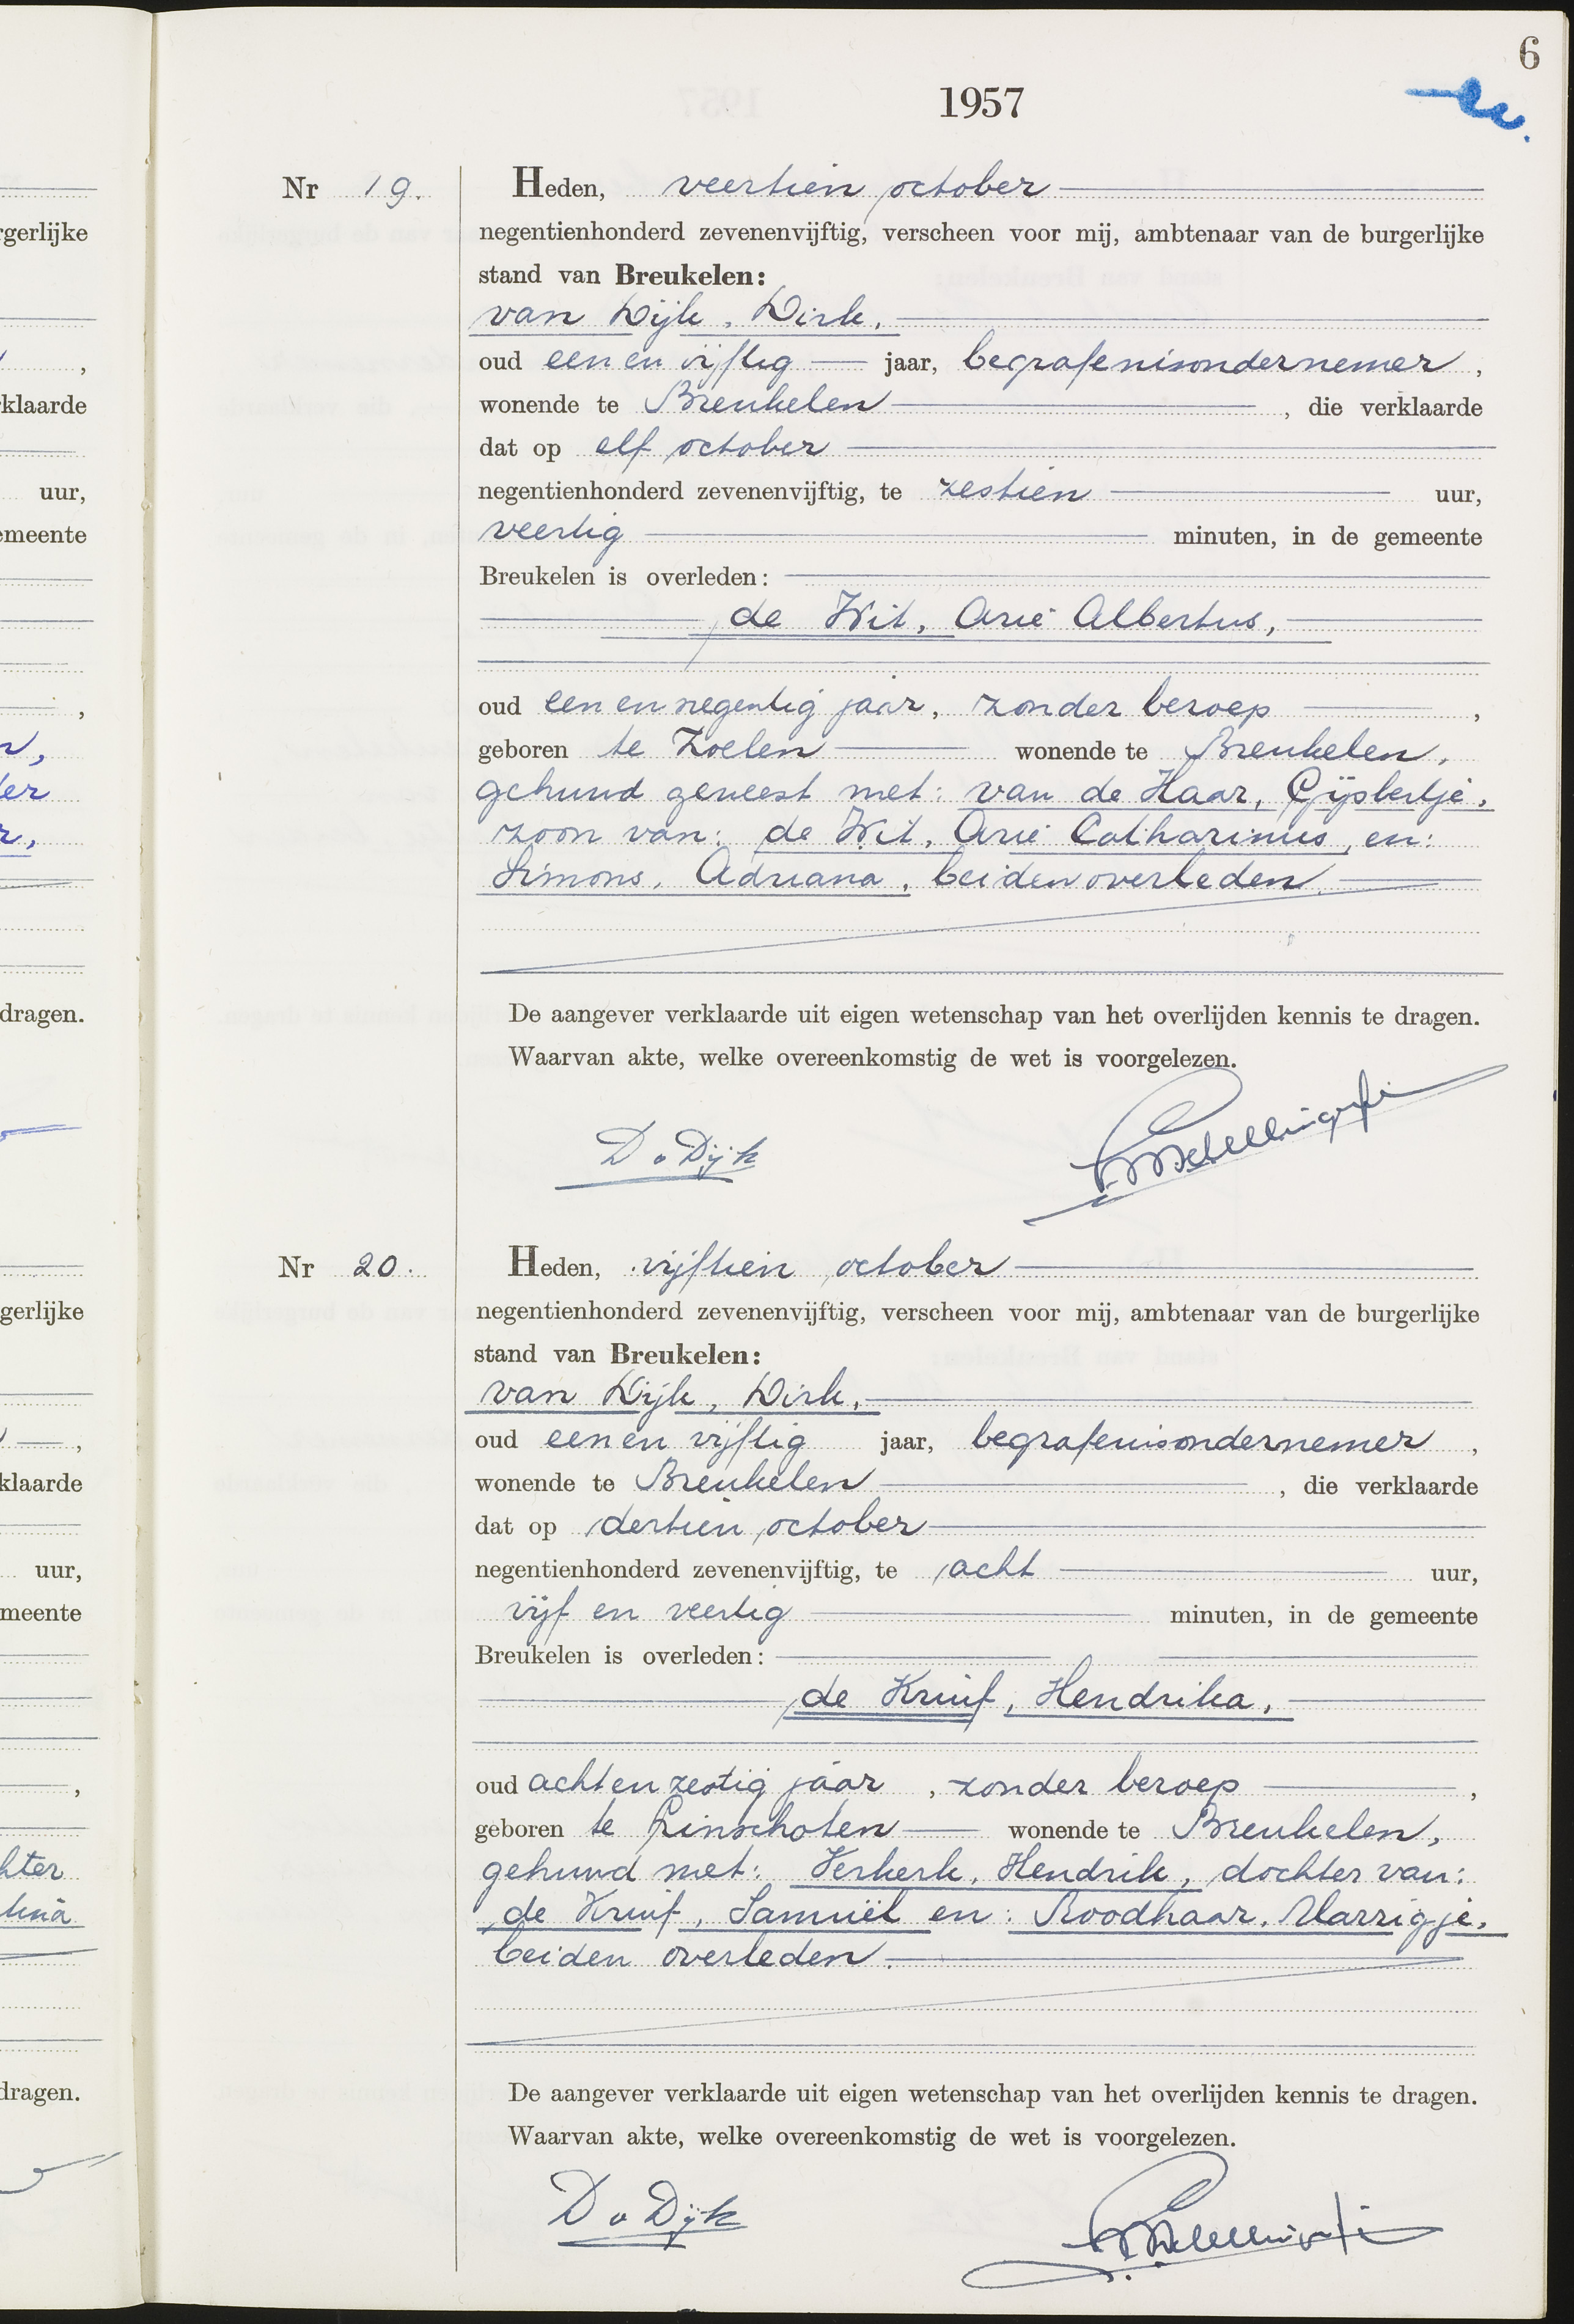 6
1957
Nr 19.
Heden, veertien october
negentienhonderd zevenenvijftig, verscheen voor mij, ambtenaar van de burgerlijke
stand van Breukelen:
van Dijk, Dirk,
oud een en vijftig jaar, begrafenisondernemer,
wonende te Breukelen, die verklaarde
dat op elf october
negentienhonderd zevenenvijftig, te zestien uur,
veertig minuten, in de gemeente
Breukelen is overleden:
de Wit, Arie Albertus,
oud een en negentig jaar, zonder beroep,
geboren te Zoelen wonende te Breukelen,
gehuwd geweest met: van de Haar, Gijsbertje,
zoon van: de Wit, Arie Catharinus, en:
Simons, Adriana, beiden overleden.
De aangever verklaarde uit eigen wetenschap van het overlijden kennis te dragen.
Waarvan akte, welke overeenkomstig de wet is voorgelezen.
D v Dijk
Nr 20.
Heden, vijftien october
negentienhonderd zevenenvijftig, verscheen voor mij, ambtenaar van de burgerlijke
stand van Breukelen:
van Dijk, Dirk,
oud een en vijftig jaar, begrafenisondernemer,
wonende te Breukelen, die verklaarde
dat op dertien october
negentienhonderd zevenenvijftig, te acht uur,
vijf en veertig minuten, in de gemeente
Breukelen is overleden:
de Kruif, Hendrika,
oud acht en zestig jaar, zonder beroep,
geboren te Linschoten wonende te Breukelen,
gehuwd met: Verkerk, Hendrik, dochter van:
de Kruif, Samuël en: Roodhaar, Marrigje,
beiden overleden.
De aangever verklaarde uit eigen wetenschap van het overlijden kennis te dragen.
Waarvan akte, welke overeenkomstig de wet is voorgelezen.
D v Dijk